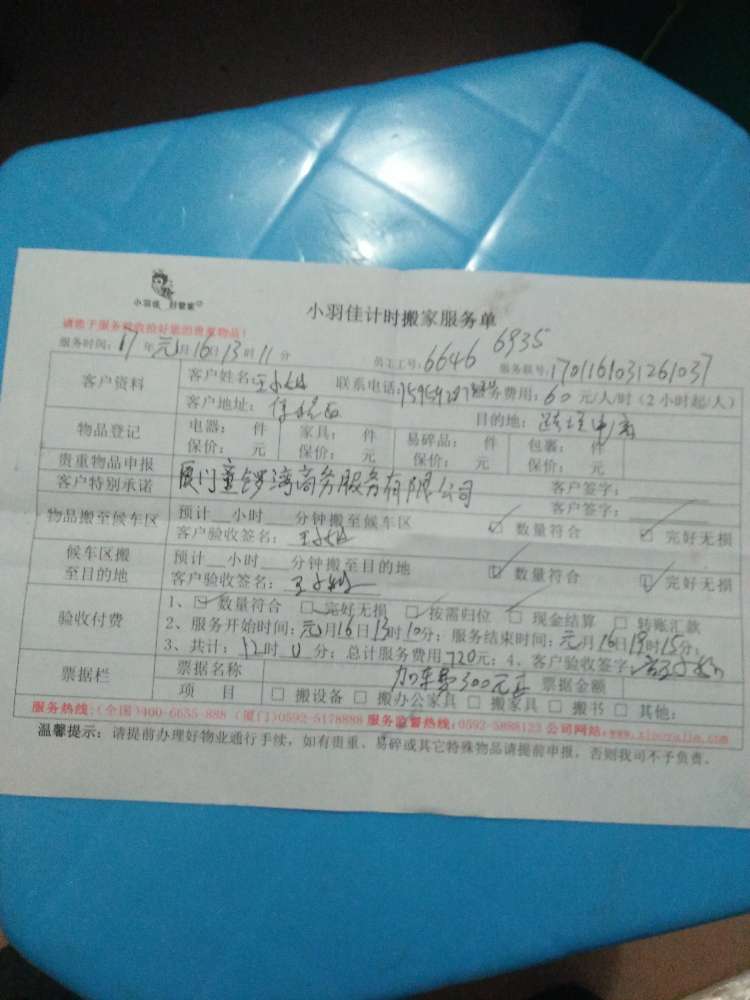 小羽佳 好管家
小羽佳计时搬家服务单
请您于服务前收捡好您的贵重物品！
服务时间：17年元月16日13时11分 员工工号：6646 6935 服务联号：1701161031261037
客户资料 客户姓名：王小姐 联系电话： 服务费用：60元/人/时（2小时起/人）
客户地址： 目的地：
物品登记 电器： 件 家具： 件 易碎品： 件 包裹： 件
保价： 元 保价： 元 保价： 元 保价： 元
贵重物品申报 客户签字：
客户特别承诺 厦门童锣湾商务服务有限公司 客户签字：
物品搬至候车区 预计 小时 分钟搬至候车区 ☑ 数量符合 ☑ 完好无损
客户验收签名：王小姐
候车区搬至目的地 预计 小时 分钟搬至目的地 ☑ 数量符合 ☑ 完好无损
客户验收签名：王小姐
验收付费 1、☑ 数量符合 ☑ 完好无损 ☑ 按需归位 ☑ 现金结算 □ 转账汇款
2、服务开始时间：元月16日13时10分；服务结束时间：元月16日19时15分；
3、共计：12时0分；总计服务费用720元；4、客户验收签字：
加车费300元正
票据栏 票据名称 票据金额
项 目 □ 搬设备 □ 搬办公家具 □ 搬家具 □ 搬书 □ 其他：
服务热线：(全国)400-6655-888 (厦门)0592-5178888 服务监督热线：0592-5888123 公司网站：www.xiaoyujia.com
温馨提示：请提前办理好物业通行手续，如有贵重、易碎或其它特殊物品请提前申报，否则我司不予负责。